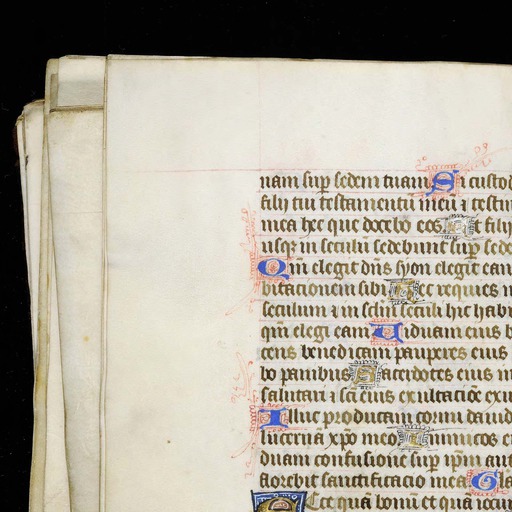 nam sup sedem tuam Si custod
filij tui testamentū meū ⁊ testim
mea hec que docebo eos Et filij
usq; in seculū sedebunt sup sede
Qm̄ elegit dn̄s syon elegit eam
bitacionem sibi Hec requies m
seculum ⁊ in sclm̄ seculi hic habi
qm̄ elegi eam Uiduam eius b
cens benedicam pauperes eius
bo panibus Sacerdotes eius in
salutari ⁊ sc̄i eius exultaciōe exu
Illuc producam cornu dauid
lucernā xp̄o meo Inimicos ei
duam confusione sup ip̄m aut
florebit sanctificacio mea Gla
Ecce quā bonū et quā iocu